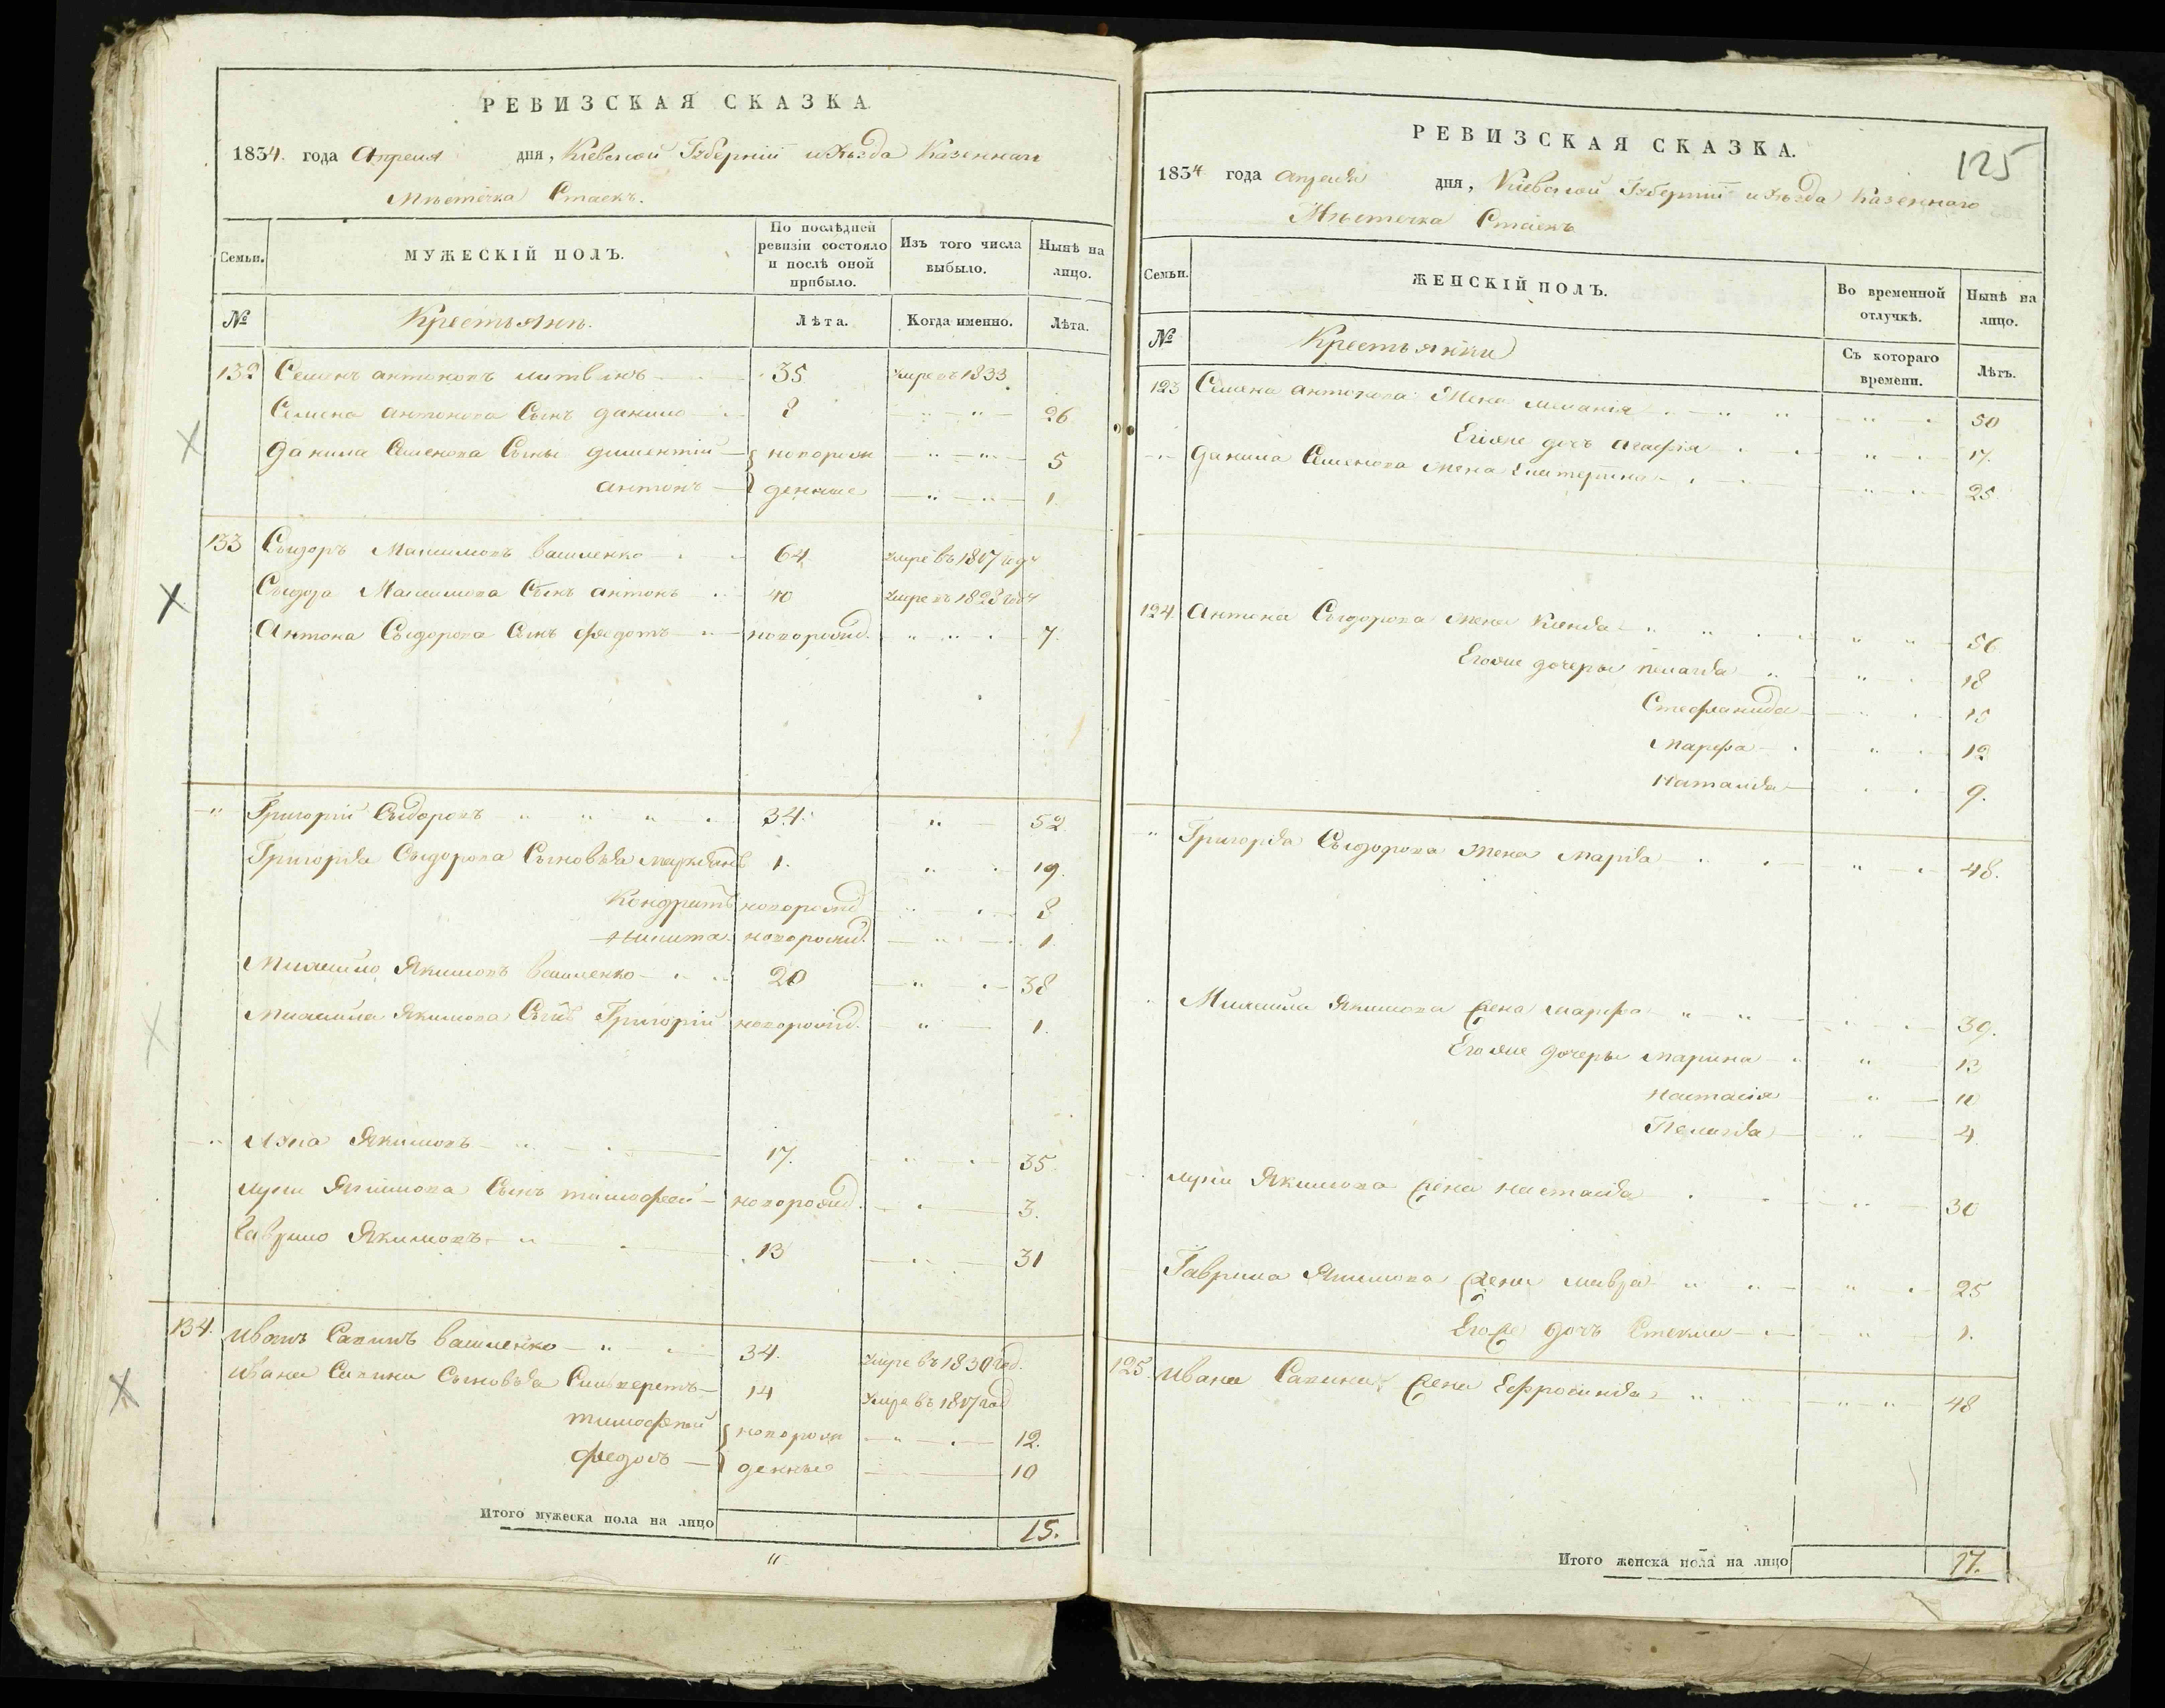 РЕВИЗСКАЯ СКАЗКА.
1834. года Апреля дня, Кіевской Губерніи и Уѣзда Казеннаго
Мѣстечка Стаекъ.
Семьи.
МУЖЕСКІЙ ПОЛЪ.
По послѣдней ревизіи состояло и послѣ оной прибыло.
Изъ того числа выбыло.
Нынѣ на лицо.
№ Крестьяне. Лѣта. Когда именно. Лѣта.
132 Семенъ Антоновъ Литвинъ 35 умре въ 1833
Семена Антонова Сынъ Данило 8 26
Данила Семенова Сыны Диментій новорож 5
Антонъ денные 1
133 Сыдоръ Максимовъ Василенко 64 умре въ 1817 году
Сыдора Максимова Сынъ Антонъ 40 умре въ 1828 году
Антона Сыдорова Сынъ Федотъ новорожд. 7
Григорій Сыдоровъ 34. 52
Григорія Сыдорова Сыновья 1. 19
Кондратъ новорожд 8
Никита новорожд. 1
Михайло Якимовъ Василенко 20 38
Михайла Якимова Сынъ Григорій новорожд. 1.
Якимовъ 17. 35
Якимова Сынъ Тимофей новорожд. 3.
Гаврило Якимовъ 13 31
134. Иванъ Савинъ Василенко 34. умре въ 1830 год.
Ивана Савина Сыновья 14 умре въ 1817 год
Тимофей новорож 12.
Федоръ денные 10
Итого мужеска пола на лицо 15.
125
РЕВИЗСКАЯ СКАЗКА.
1834 года Апреля дня, Кіевской Губерніи и Уѣзда Казеннаго
Мѣстечка Стаекъ
Семьи.
ЖЕНСКІЙ ПОЛЪ.
Во временной отлучкѣ.
Нынѣ на лицо.
№ Крестьянки Съ котораго времени. Лѣтъ.
123 Семена Антонова Жена Меланія 50
Егоже дочь Агафія 17.
Данила Семенова Жена Екатерина 25
124 Антона Сыдорова Жена 56
Егоже дочеры Пелагія 18
Стефанида 15
Марфа 12
Наталія 9.
Григорія Сыдорова Жена Марія 48.
Михайла Якимова Жена Марфа 39.
Егоже дочеры Марина 13
Настасія 10
Пелагія 4.
Якимова Жена Настасія 30
Гаврила Якимова Жена Мавра 25
Егоже дочь Стекла 1.
125. Ивана Савина Жена Ефросинія 48
Итого женска пола на лицо 17.